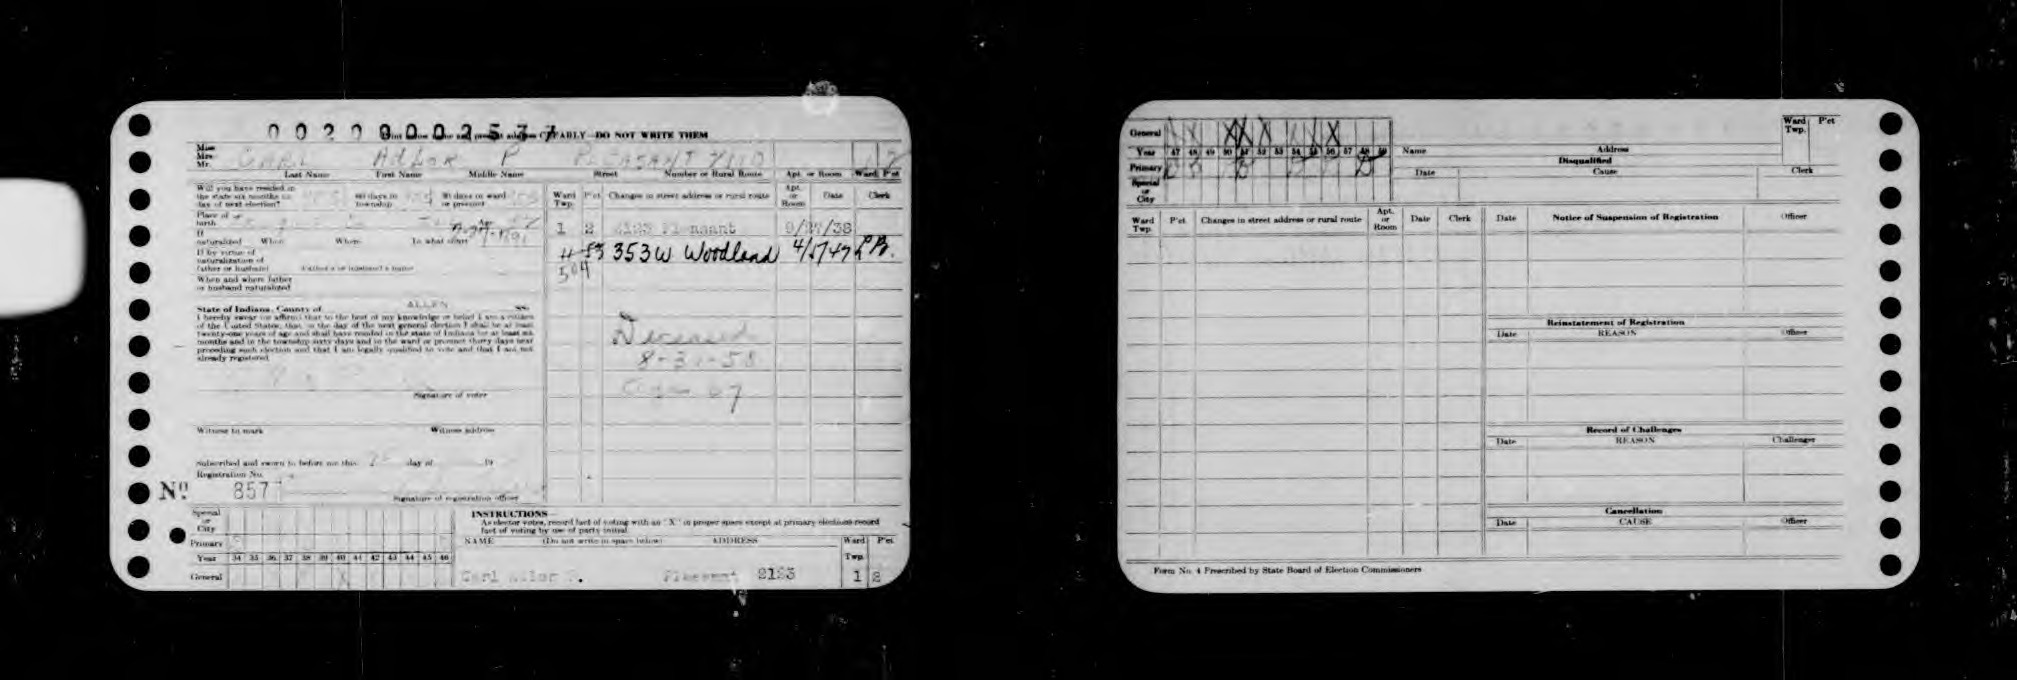 0 0 2 0 0 0 0 2 5 7 7
CLEARLY—DO NOT WRITE THEM
Miss
Mrs.
Mr. CARL ADLOR P PLEASANT 1 2
Last Name First Name Middle Name Street Number or Rural Route Apt. or Room Ward P'ct
Will you have resided in
the state six months to
day of next election?
60 days in
township
30 days in ward
or precinct
Ward Twp. P'ct Changes in street address or rural route Apt. or Room Date Clerk
Place of
birth
1 2 2123 Pleasant 9/27/38
If
naturalized When Where To what court
353 W Woodland 4/5/47 L B.
504
If by virtue of
naturalization of
father or husband Father's or husband's name
When and where father
or husband naturalized
State of Indiana, County of ALLEN ss:
I hereby swear (or affirm) that to the best of my knowledge or belief I am a citizen
of the United States, that on the day of the next general election I shall be at least
twenty-one years of age and shall have resided in the state of Indiana for at least six
months and in the township sixty days and in the ward or precinct thirty days next
preceding such election and that I am legally qualified to vote and that I am not
already registered.
Deceased
8-31-58
age 67
Signature of voter
Witness to mark Witness address
Subscribed and sworn to before me this day of 19
Registration No.
No. 857
Signature of registration officer
Special
or
City
Primary
Year 34 35 36 37 38 39 40 41 42 43 44 45 46
General
INSTRUCTIONS—
As elector votes, record fact of voting with an "X" in proper space except at primary elections record
fact of voting by use of party initial.
NAME (Do not write in space below) ADDRESS Ward Twp. P'ct
Carl Adlor P. Pleasant 2123 1 2
General X X X X X X
Year 47 48 49 50 51 52 53 54 55 56 57 58 59
Primary
Special
or
City
Name Address Ward Twp. P'ct
Disqualified
Date Cause Clerk
Ward Twp. P'ct Changes in street address or rural route Apt. or Room Date Clerk
Date Notice of Suspension of Registration Officer
Reinstatement of Registration
Date REASON Officer
Record of Challenges
Date REASON Challenger
Cancellation
Date CAUSE Officer
Form No. 4 Prescribed by State Board of Election Commissioners